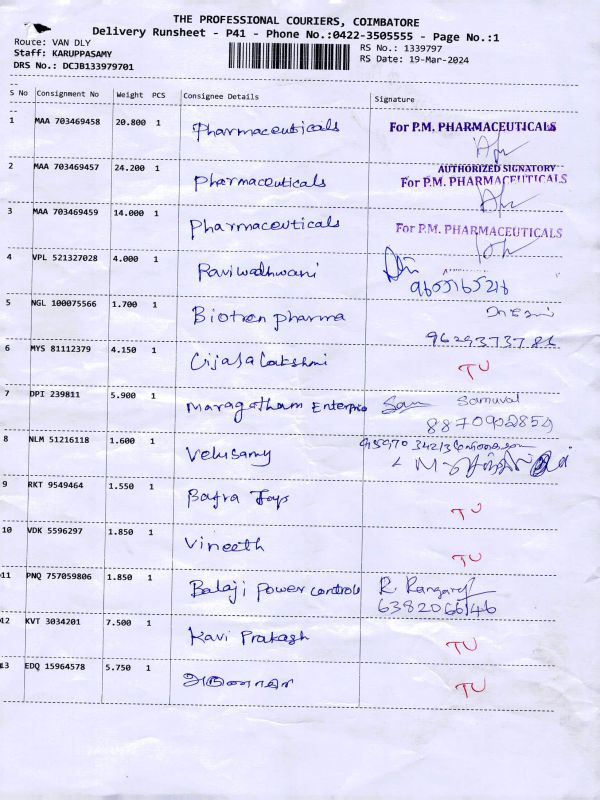 THE PROFESSIONAL COURIERS, COIMBATORE
Delivery Runsheet - P41 - Phone No.:0422-3505555 - Page No.:1
Route: VAN DLY
RS No.: 1339797
Staff: KARUPPASAMY
RS Date: 19-Mar-2024
DRS No.: DCJB133979701
S No Consignment No Weight PCS Consignee Details Signature
1 MAA 703469458 20.800 1 Pharmaceuticals For P.M. PHARMACEUTICALS
AUTHORIZED SIGNATORY
2 MAA 703469457 24.200 1 Pharmaceuticals For P.M. PHARMACEUTICALS
3 MAA 703469459 14.000 1 Pharmaceuticals For P.M. PHARMACEUTICALS
4 VPL 521327028 4.000 1 Raviwadhwani
5 NGL 100075566 1.700 1 Biotren pharma
9629373786
6 MYS 81112379 4.150 1 Lakshmi TU
7 DPI 239811 5.900 1 Maragatham Enterprise Sam Samuval
8870902859
8 NLM 51216118 1.600 1 Velusamy
9 RKT 9549464 1.550 1 TU
10 VDK 5596297 1.850 1 Vineeth TU
11 PNQ 757059806 1.850 1 Balaji Power controls R. Rangaraj
6382066146
12 KVT 3034201 7.500 1 Kavi Prakash TU
13 EDQ 15964578 5.750 1 TU